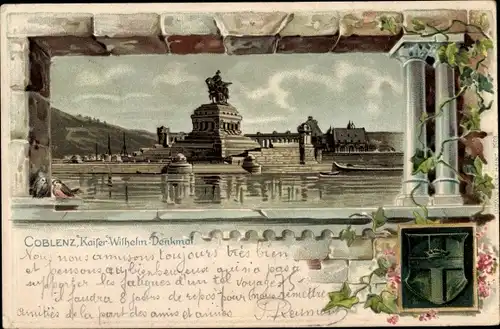 COBLENZ, Kaiser-Wilhelm-Denkmal
Nous nous amusons toujours très bien
et pensons au qui n'a pas a
supporter les fatigues d'un tel voyage
Il faudra 8 jours de repos pour nous remettre
amitiés de la part des amis et amies